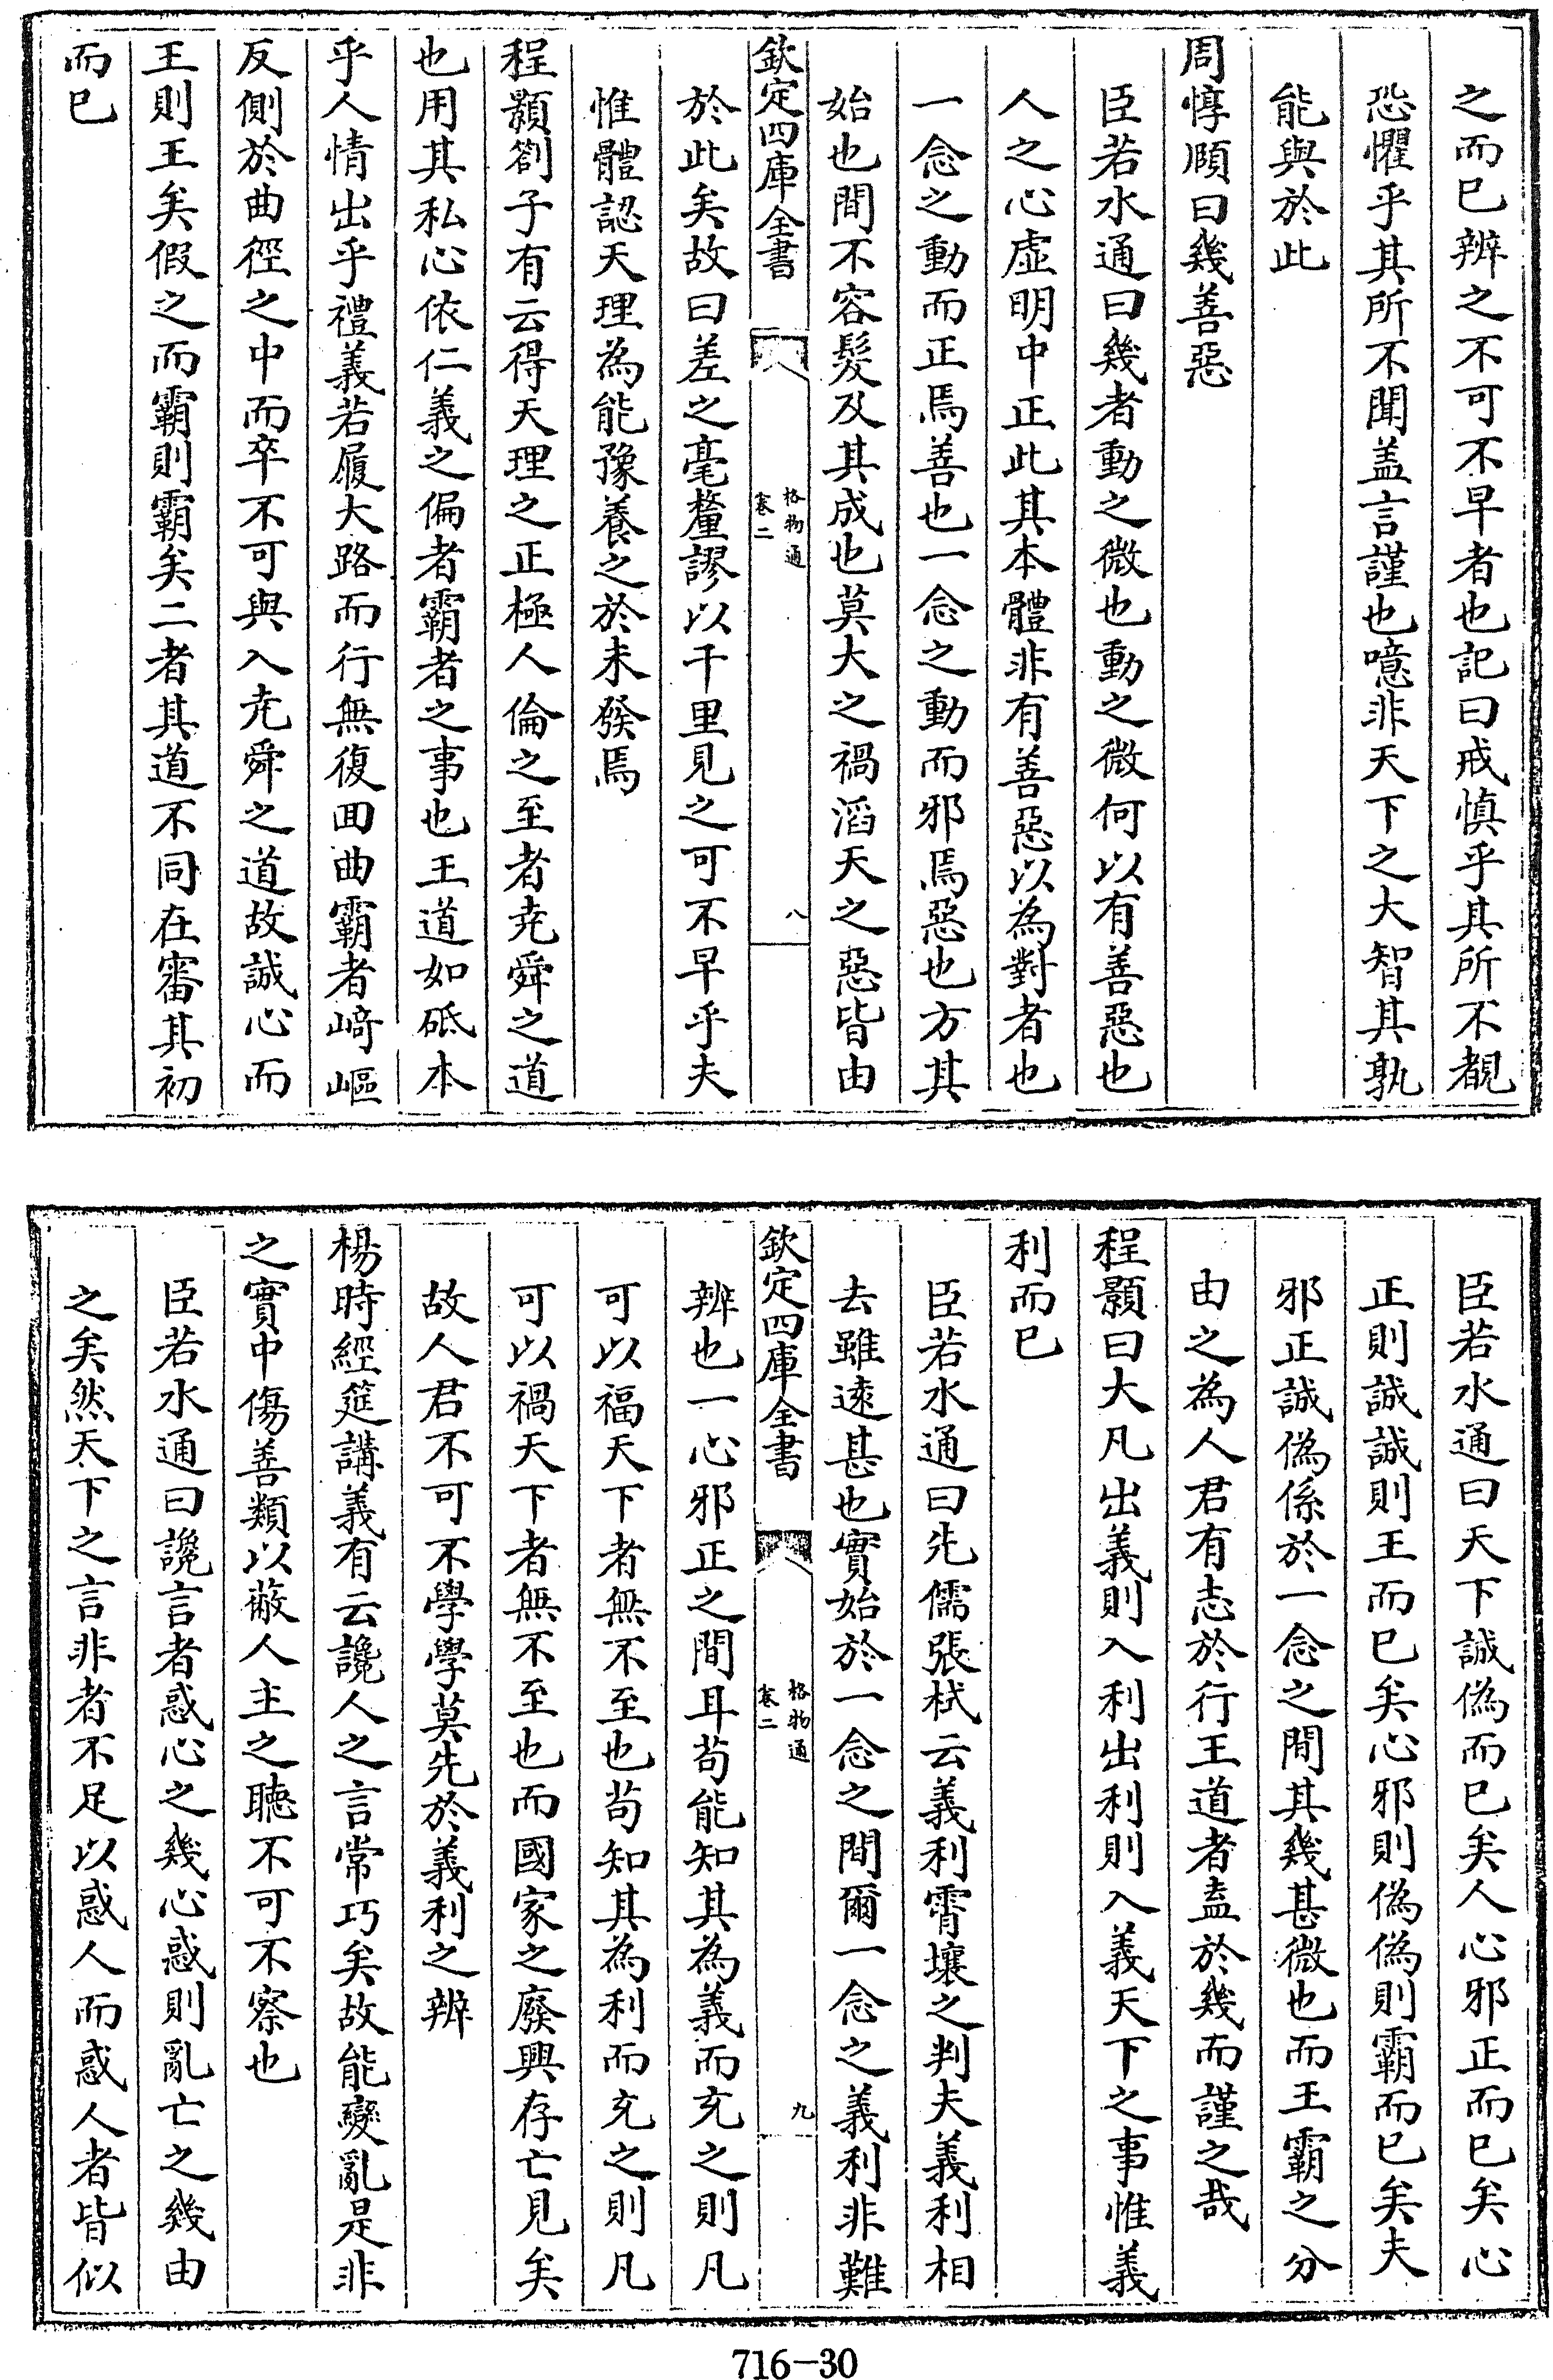 之而已辨之不可不早者也記曰戒慎乎其所不覩
恐懼乎其所不聞盖言謹也噫非天下之大智其孰
能與於此
周惇頤曰幾善惡
臣若水通曰幾者動之微也動之微何以有善惡也
人之心虛明中正此其本體非有善惡以為對者也
一念之動而正焉善也一念之動而邪焉惡也方其
始也間不容髮及其成也莫大之禍滔天之惡皆由
欽定四庫全書
格物通
卷二
八
於此矣故曰差之毫釐謬以千里見之可不早乎夫
惟體認天理為能豫養之於未發焉
程顥劄子有云得天理之正極人倫之至者尭舜之道
也用其私心依仁義之偏者霸者之事也王道如砥本
乎人情出乎禮義若履大路而行無復回曲霸者﨑嶇
反側於曲徑之中而卒不可與入尭舜之道故誠心而
王則王矣假之而霸則霸矣二者其道不同在審其初
而已
臣若水通曰天下誠偽而已矣人心邪正而已矣心
正則誠誠則王而已矣心邪則偽偽則霸而已矣夫
邪正誠偽係於一念之間其幾甚微也而王霸之分
由之為人君有志於行王道者盍於幾而謹之哉
程顥曰大凡出義則入利出利則入義天下之事惟義
利而已
臣若水通曰先儒張栻云義利霄壤之判夫義利相
去雖遠甚也實始於一念之間爾一念之義利非難
欽定四庫全書
格物通
卷二
九
辨也一心邪正之間耳苟能知其為義而充之則凡
可以福天下者無不至也苟知其為利而充之則凡
可以禍天下者無不至也而國家之廢興存亡見矣
故人君不可不學學莫先於義利之辨
楊時經筵講義有云讒人之言常巧矣故能變亂是非
之實中傷善類以蔽人主之聽不可不察也
臣若水通曰讒言者惑心之幾心惑則亂亡之幾由
之矣然天下之言非者不足以惑人而惑人者皆似
716-30